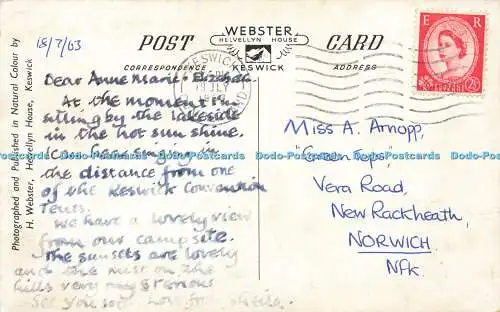 18/7/63
POST
WEBSTER
HELVELLYN HOUSE
KESWICK
CARD
CORRESPONDENCE
ADDRESS
E R
2½D
KESWICK
Photographed and Published in Natural Colour by
H. Webster, Helvellyn House, Keswick
Dear Anne Marie +
At the moment I'm
sitting by the lakeside
in the hot sun shine.
I can hear singing in
the distance from one
of the Keswick Convention
Tents.
We have a lovely view
from our camp site.
The sunsets are lovely
and the mist on the
hills very mysterious
See you soon Love from
Miss A. Arnopp,
"Green
Vera Road,
New Rackheath,
NORWICH
Nfk.
Dodo-Postcards